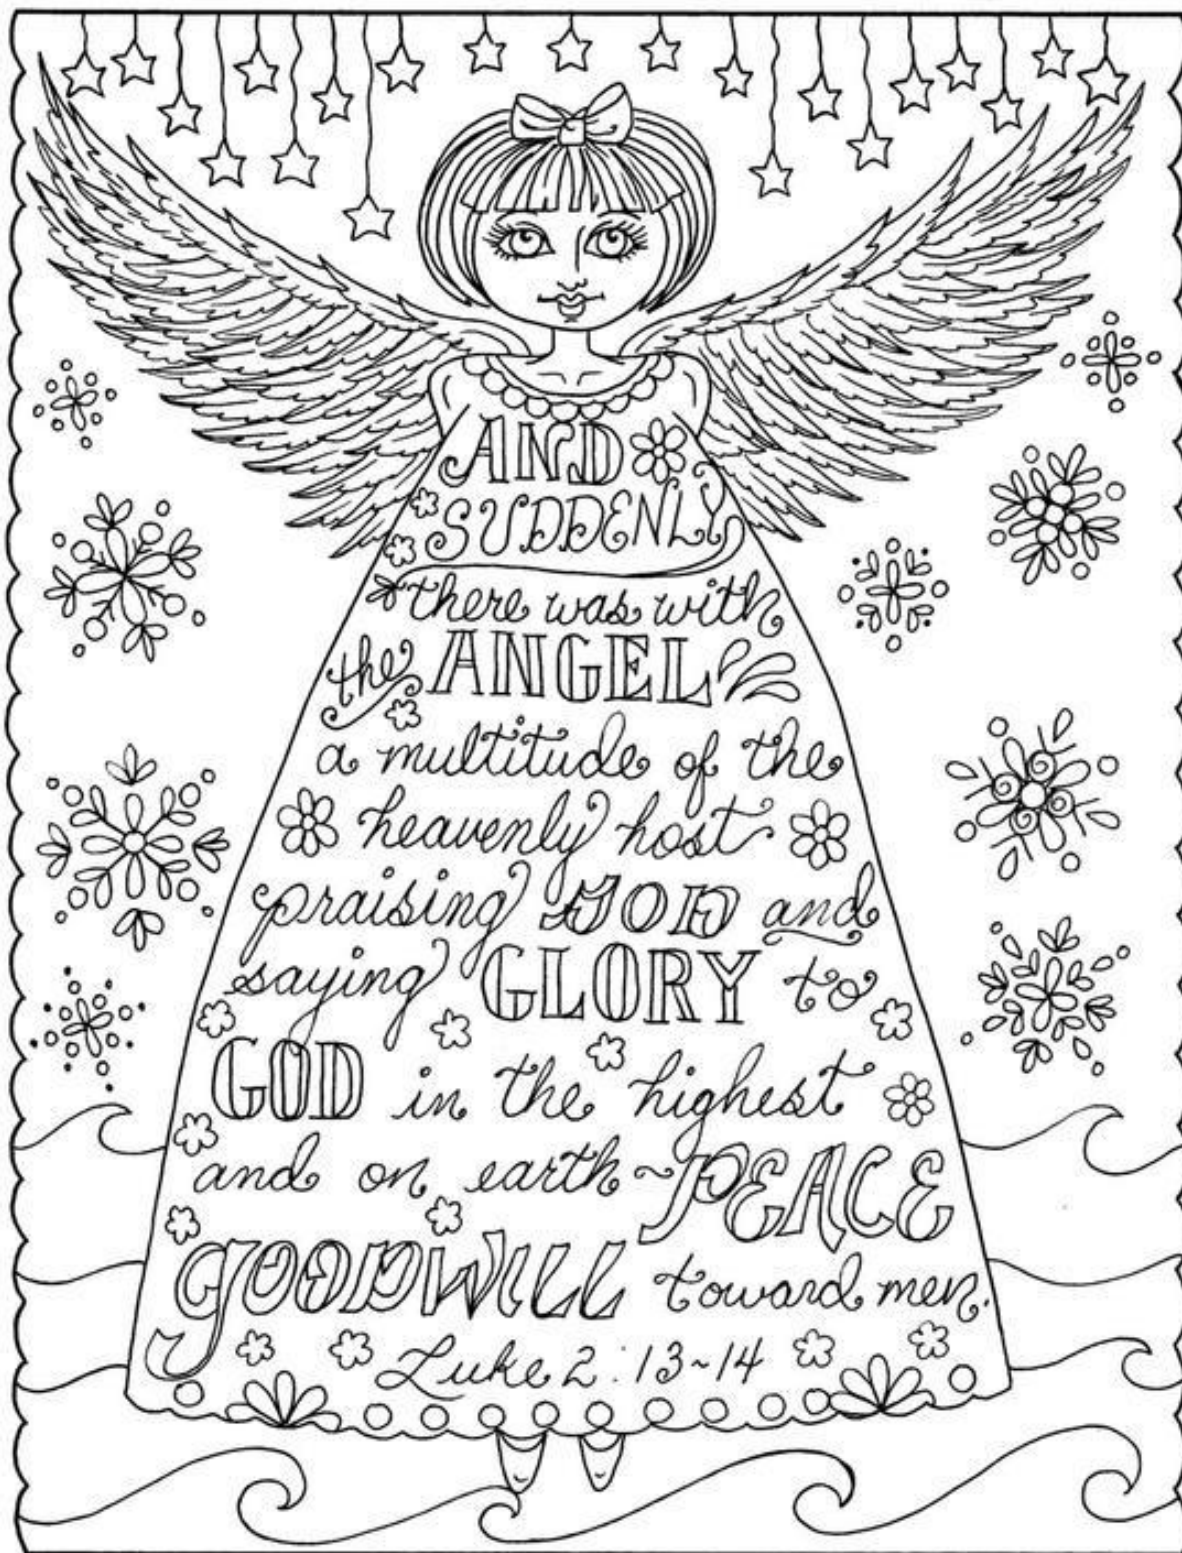 AND
SUDDENLY
there was with
the ANGEL
a multitude of the
heavenly host
praising GOD and
saying GLORY to
GOD in the highest
and on earth ~ PEACE
GOODWILL toward men.
Luke 2:13~14